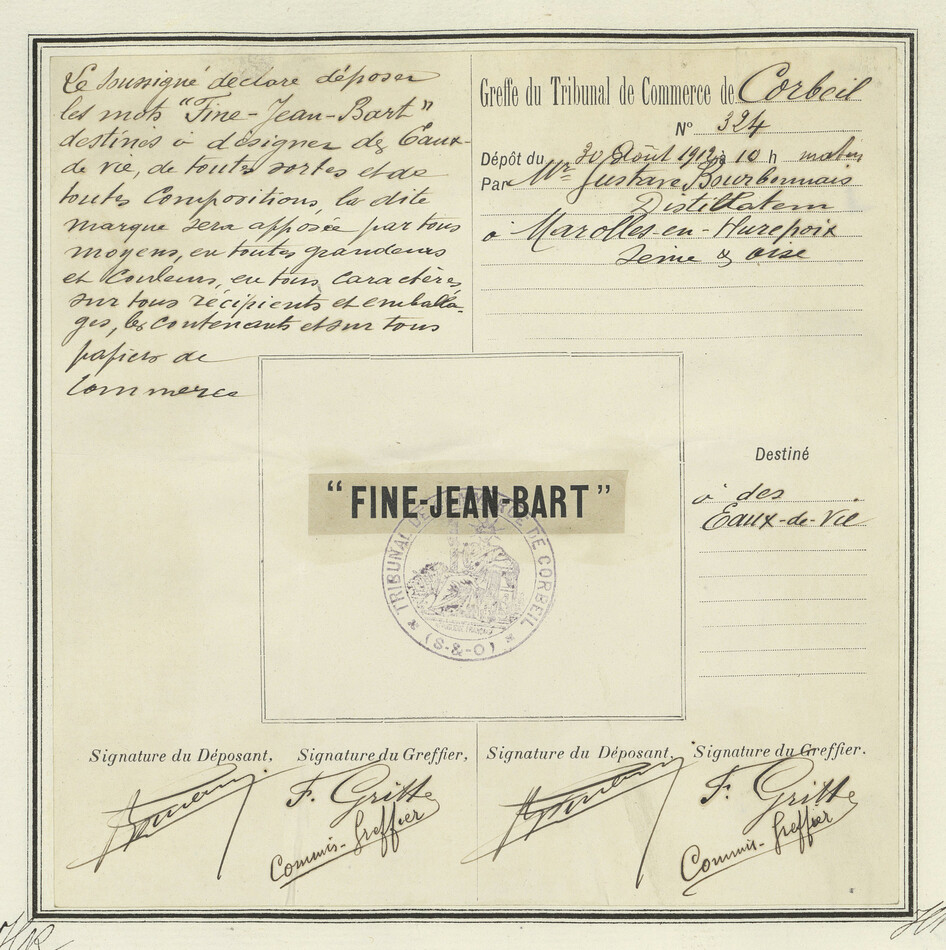 Le soussigné déclare déposer
les mots "Fine-Jean-Bart"
destinés à désigner des Eaux-
de vie, de toutes sortes et de
toutes compositions, la dite
marque sera apposée par tous
moyens, en toutes grandeurs
et couleurs, en tous caractères
sur tous récipients et emballa-
ges, les contenants et sur tous
papiers de
commerce
Greffe du Tribunal de Commerce de Corbeil
N° 324
Dépôt du 30 Août 1912 à 10 h matin
Par Mr Gustave Bourbonnais
Distillateur
à Marolles-en-Hurepoix
Seine & Oise
"FINE-JEAN-BART"
TRIBUNAL DE COMMERCE DE CORBEIL
(S-&-O)
Destiné
à des
Eaux-de-Vie
Signature du Déposant, Signature du Greffier,
F. Gritte
Commis-Greffier
Signature du Déposant, Signature du Greffier.
F. Gritte
Commis-Greffier